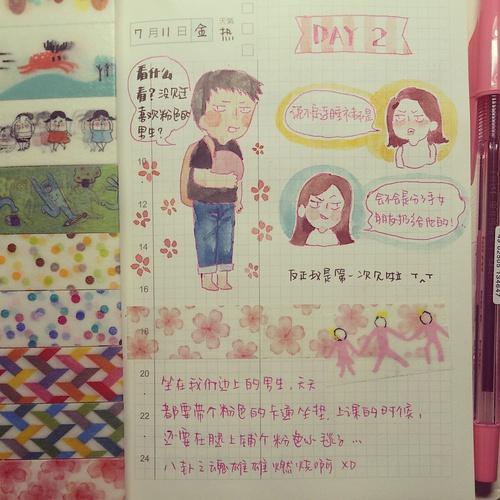 7月11日 金 天気 热
DAY 2
看什么
看?没见过
喜欢粉色的
男生?
会不会是分手女
朋友扔给他的!
反正我是第一次见啦 T^T
16
18
20
22
24
坐在我们边上的男生,天天
都要带个粉色的卡通坐垫,上课的时候,
还要在腿上铺个粉色小毯子…
八卦之魂雄雄燃烧啊 XD